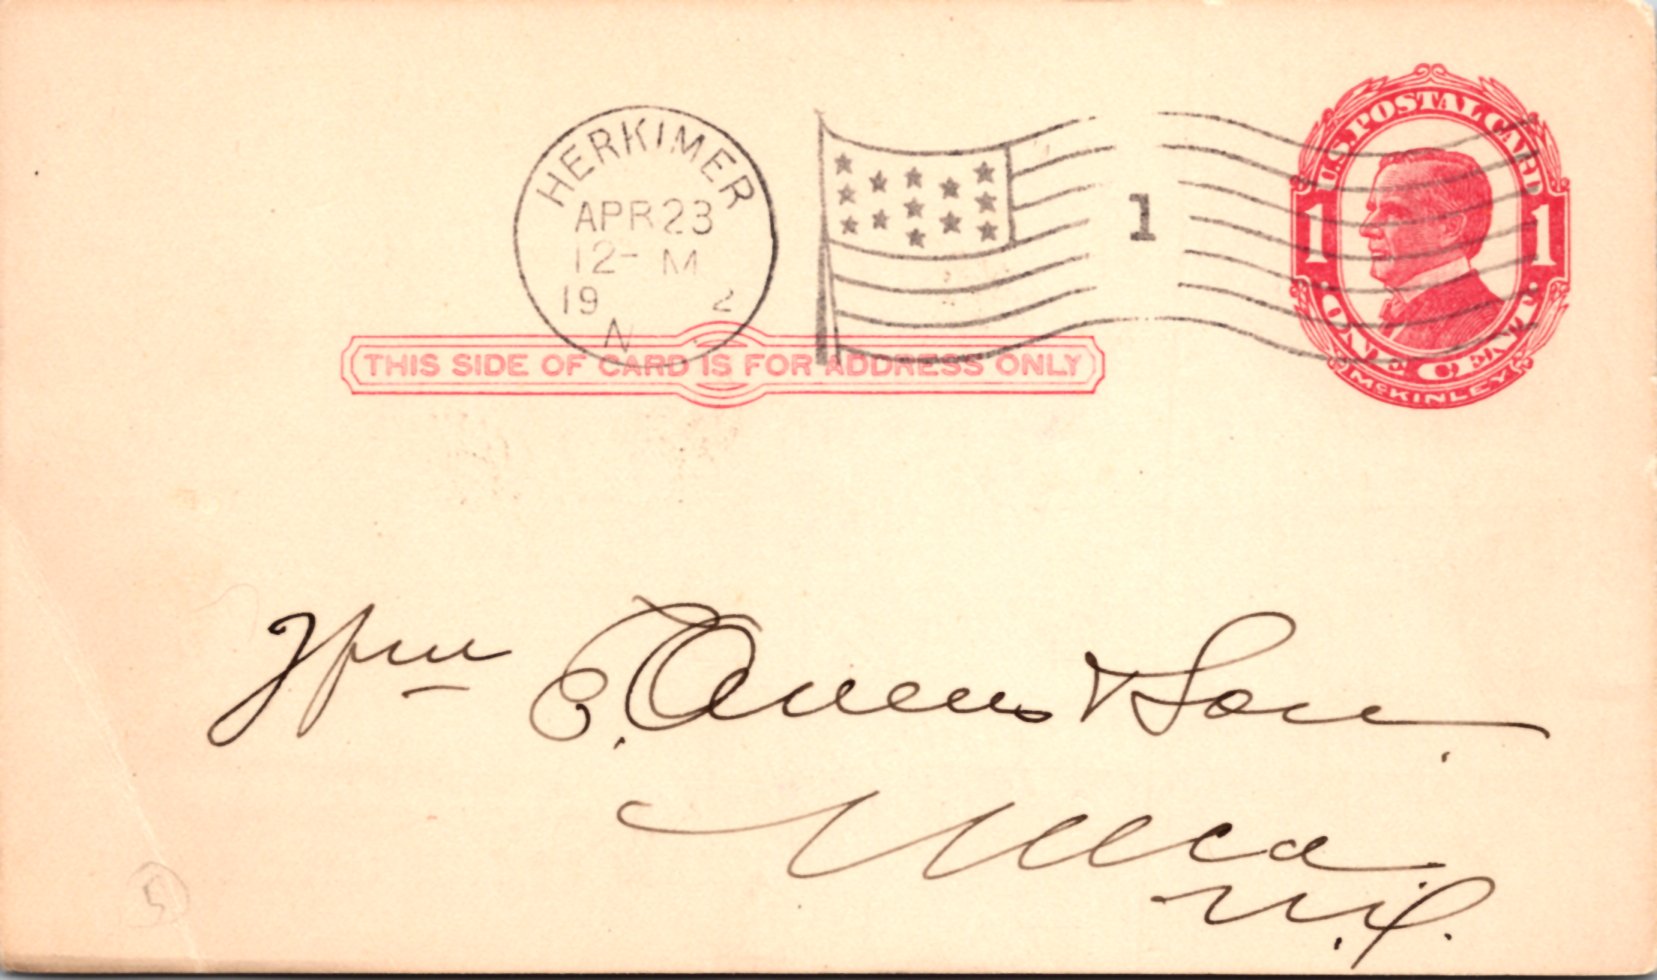 HERKIMER
APR 23
12- M
19 2
N
1
U.S. POSTAL CARD
1 1
ONE CENT
McKINLEY
THIS SIDE OF CARD IS FOR ADDRESS ONLY
Wm E. Owens & Son.
Utica
N.Y.
5